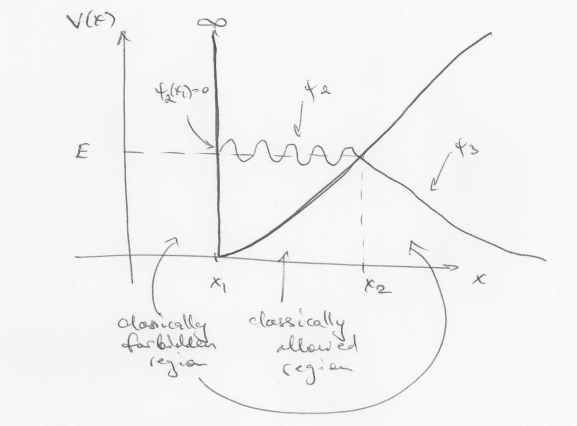 V(x)
∞
ψ₂(x₁)=0
ψ₂
E
ψ₃
x₁
x₂
x
classically
forbidden
region
classically
allowed
region